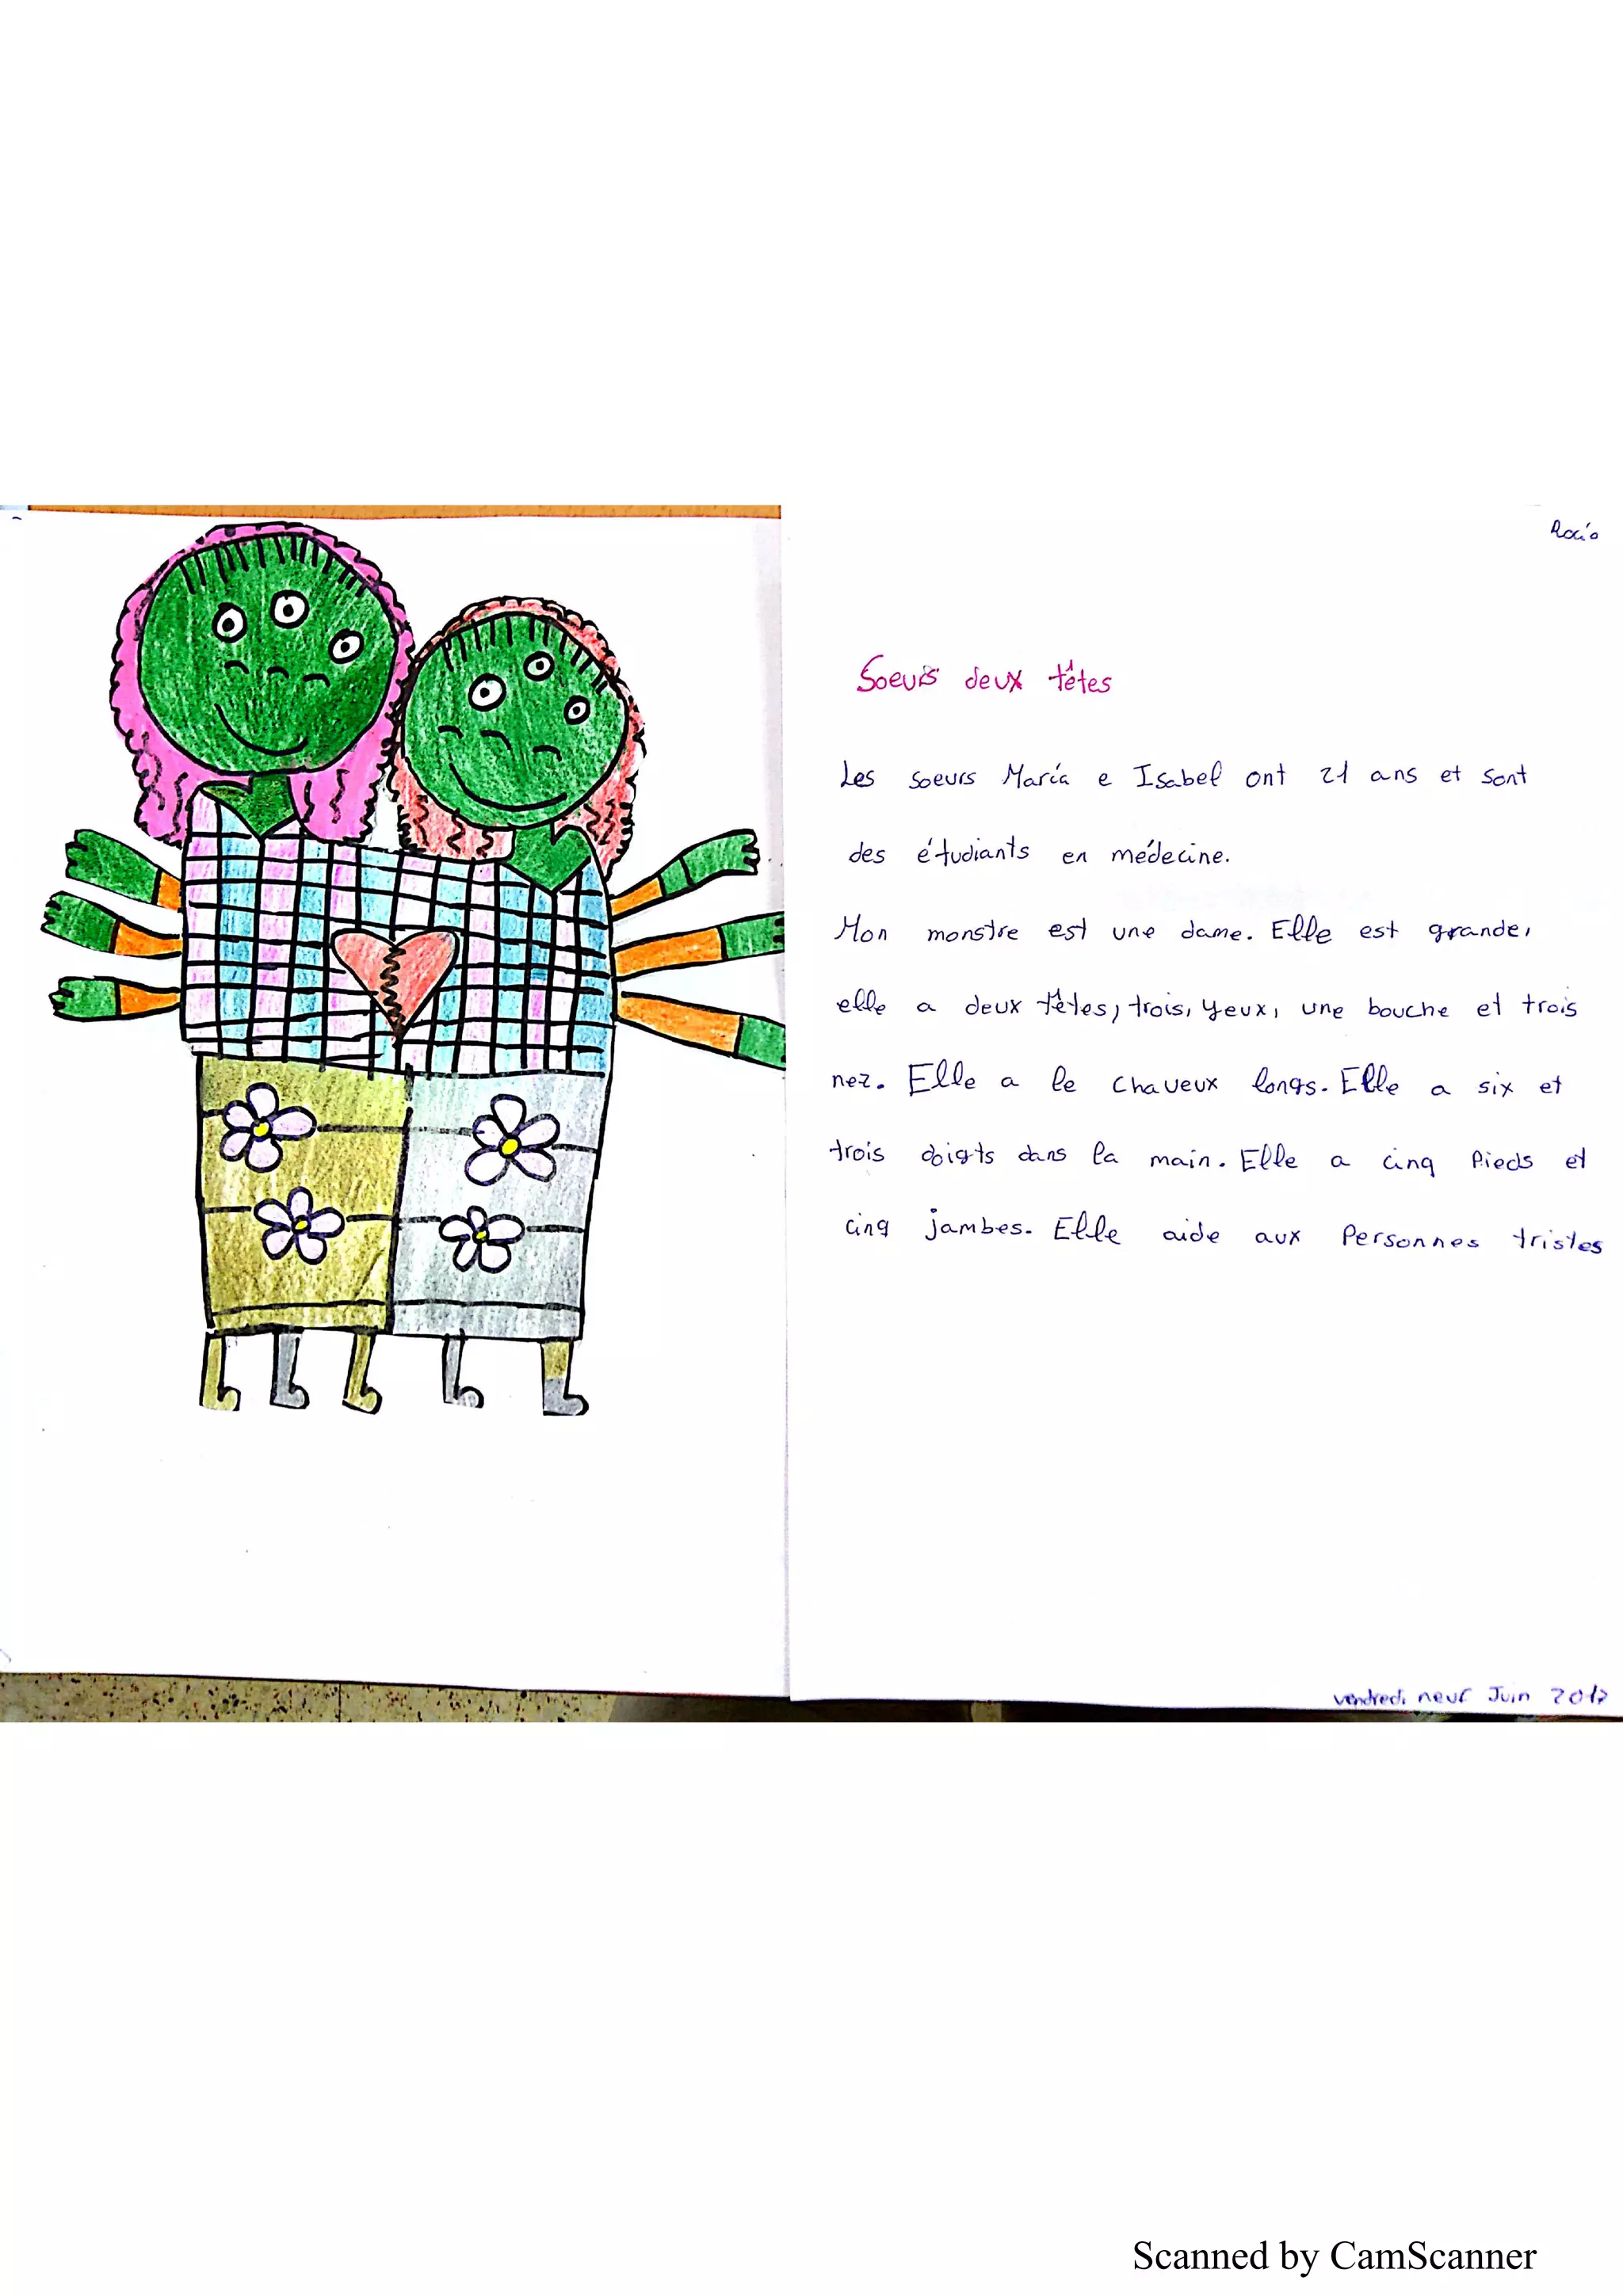 Rocío
Soeurs deux têtes
Les soeurs María e Isabel ont 21 ans et sont
des étudiants en médecine.
Mon monstre est une dame. Elle est grande,
elle a deux têtes, trois, yeux, une bouche et trois
nez. Elle a le chaveux longs. Elle a six et
trois doigts dans la main. Elle a cinq pieds et
cinq jambes. Elle aide aux personnes tristes
vendredi neuf Juin 2017
Scanned by CamScanner